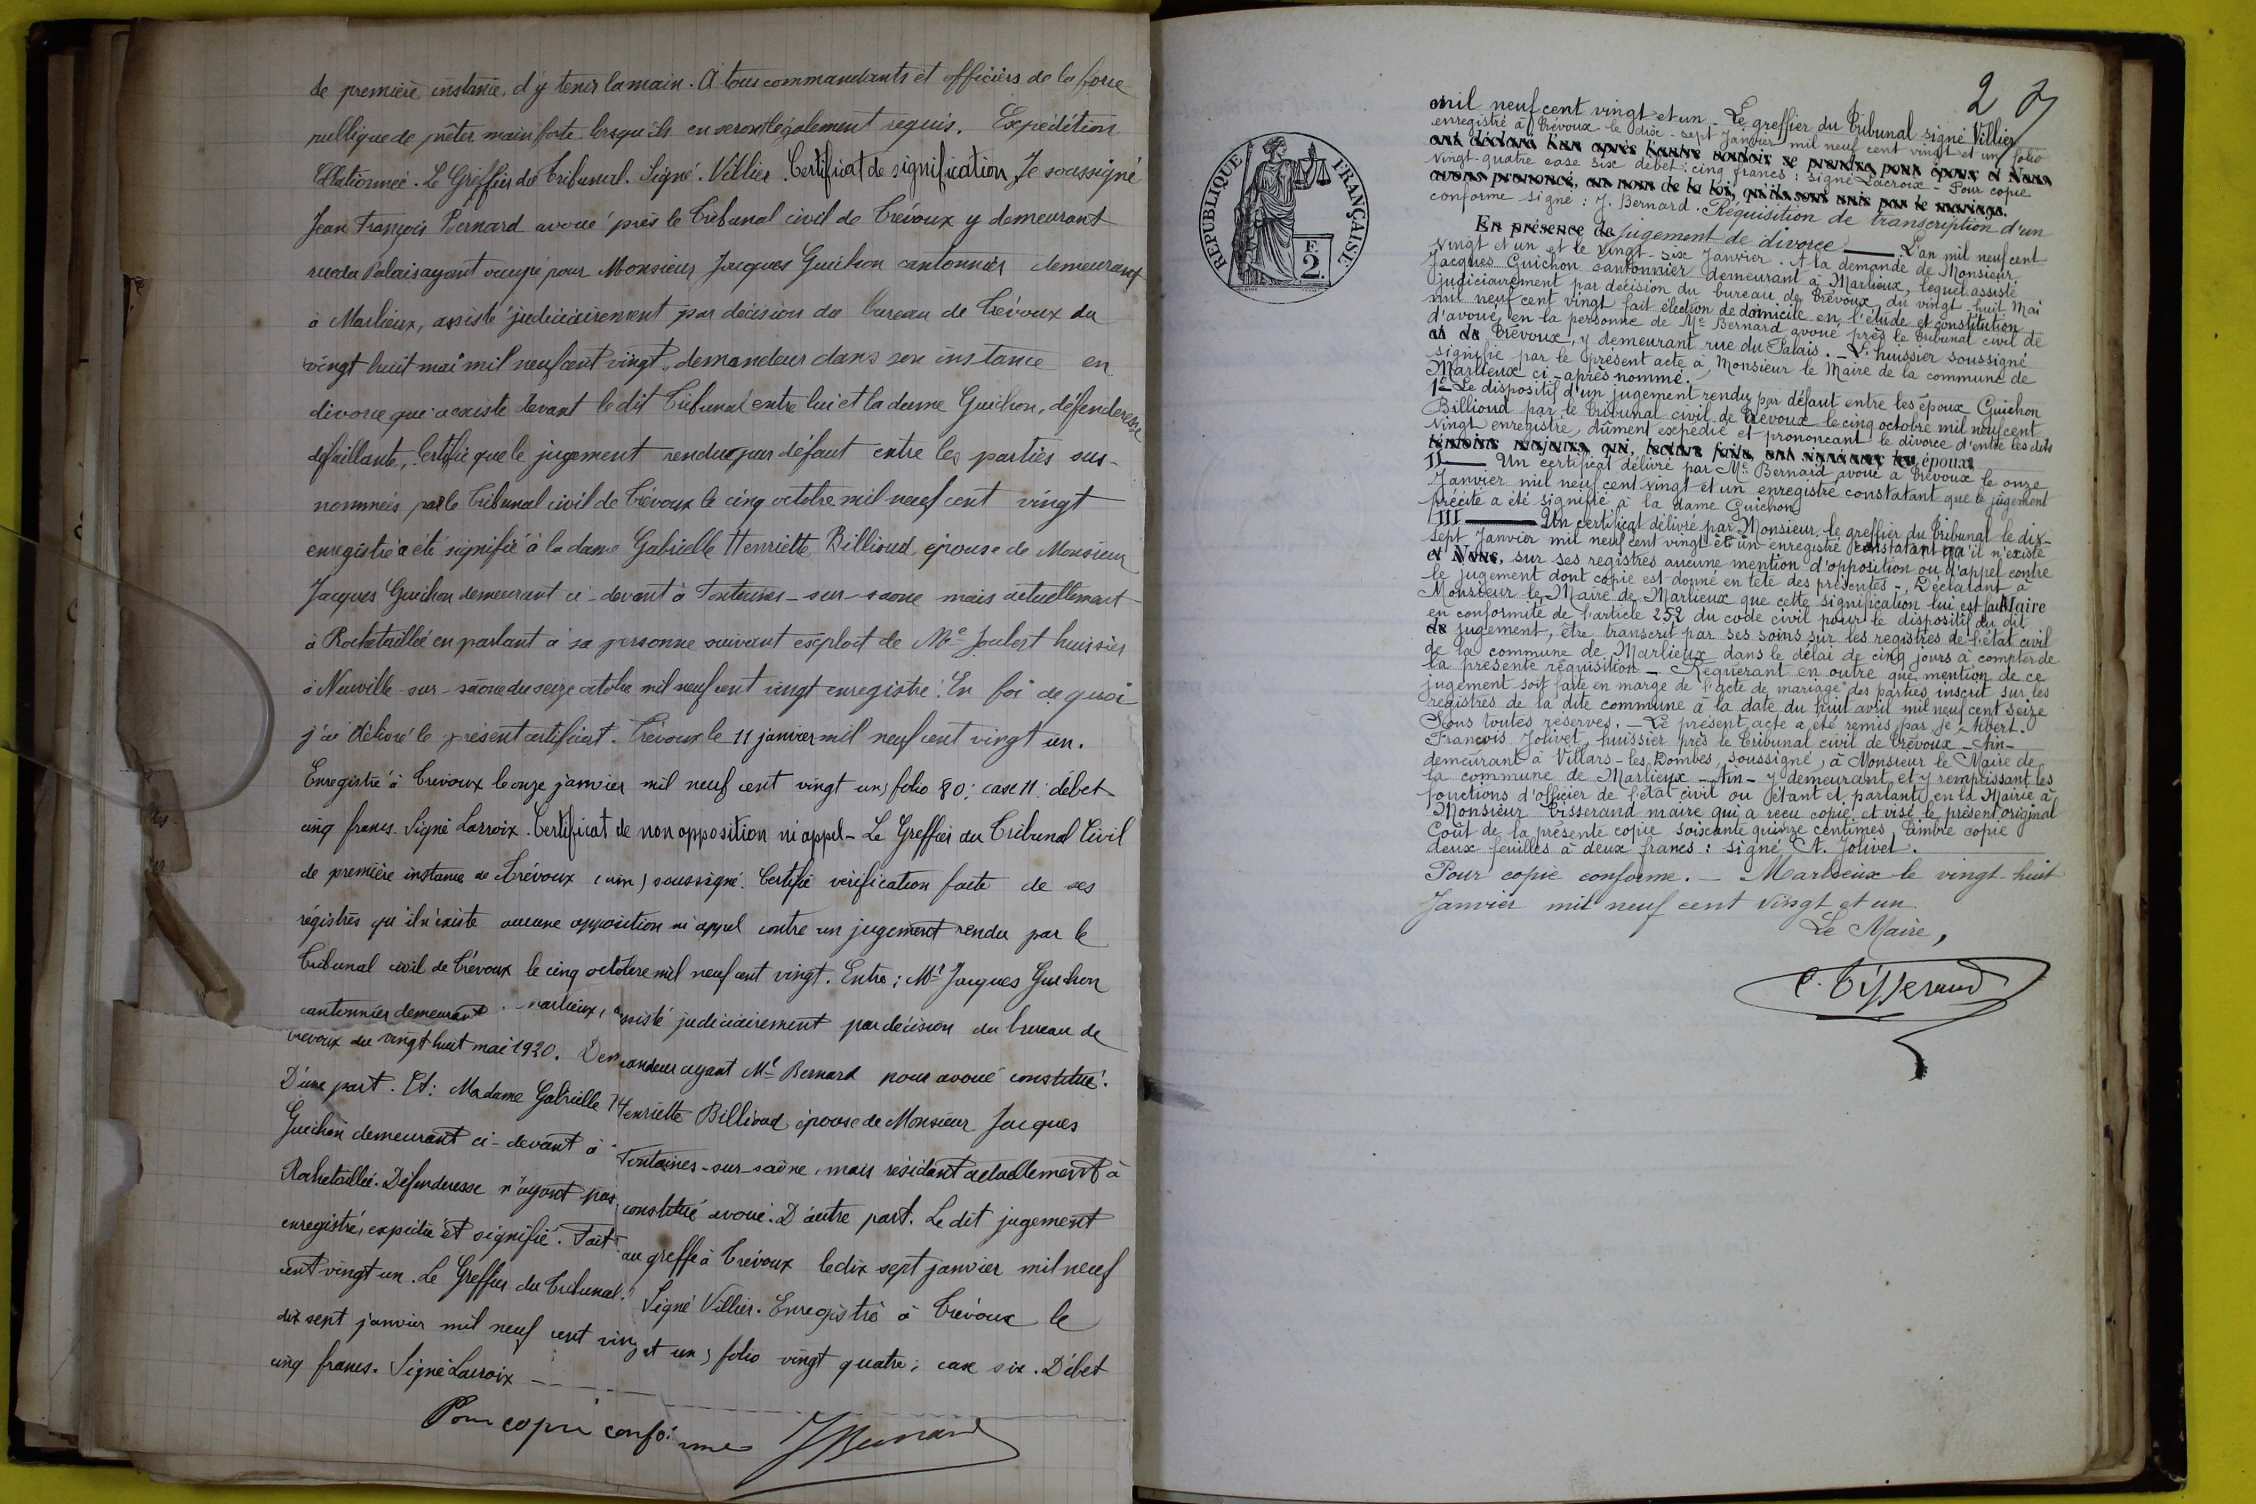 de première instance, d'y tenir la main. A tous commandants et officiers de la force
publique de prêter main forte lorsqu'ils en seront légalement requis. Expédition
Collationnée. Le Greffier du Tribunal. Signé. Villier. Certificat de signification. Je soussigné
Jean François Bernard avoué près le Tribunal civil de Trévoux y demeurant
rue du Palais ayant occupé pour Monsieur Jacques Guichon cantonnier demeurant
à Marlieux, assisté judiciairement par décision du bureau de Trévoux du
vingt huit mai mil neuf cent vingt, demandeur dans son instance en
divorce qui a existé devant le dit Tribunal entre lui et la dame Guichon, défenderesse
défaillante, Certifie que le jugement rendu par défaut entre les parties sus-
nommées, par le Tribunal civil de Trévoux le cinq octobre mil neuf cent vingt
enregistré a été signifié à la dame Gabrielle Henriette Billioud épouse de Monsieur
Jacques Guichon demeurant ci-devant à Fontaines-sur-saone mais actuellement
à Rochetaillée en parlant à sa personne suivant exploit de Me Joubert huissier
à Neuville-sur-saône du seize octobre mil neuf cent vingt enregistré. En foi de quoi
j'ai délivré le présent certificat. Trévoux le 11 janvier mil neuf cent vingt un.
Enregistré à Trevoux le onze janvier mil neuf cent vingt un, folio 80; case 11: débet
cinq francs. Signé Lacroix. Certificat de non opposition ni appel - Le Greffier du Tribunal Civil
de première instance de Trévoux (ain) soussigné. Certifie vérification faite de ses
régistres qu'il n'existe aucune opposition ni appel contre un jugement rendu par le
Tribunal civil de Trévoux le cinq octobre mil neuf cent vingt. Entre: Mr Jacques Guichon
cantonnier demeurant marlieux, assisté judiciairement par décision du bureau de
Trévoux du vingt huit mai 1920. Demandeur ayant Me Bernard pour avoué constitué.
D'une part. Et: Madame Gabrielle Henriette Billioud épouse de Monsieur Jacques
Guichon demeurant ci-devant à Fontaines-sur-saône, mais résidant actuellement à
Rochetaillée. Défenderesse n'ayant pas constitué avoué. D'autre part. Le dit jugement
enregistré, expédié et signifié. Fait au greffe à Trévoux le dix sept janvier mil neuf
cent vingt un. Le Greffier du Tribunal. Signé Villier. Enregistré à Trévoux le
dix sept janvier mil neuf cent vingt un, folio vingt quatre; case six. Débet
cinq francs. Signé Lacroix
Pour copie conforme JBernard
2
RÉPUBLIQUE FRANÇAISE
2 F.
mil neuf cent vingt et un - Le greffier du Tribunal signé Villier
enregistré à Trévoux le dix-sept Janvier mil neuf cent vingt et un folio
ont déclaré l'un après l'autre vouloir se prendre pour époux et Nous
vingt-quatre case six débet: cinq francs: signé Lacroix - Pour copie
avons prononcé, au nom de la loi, qu'ils sont unis par le mariage.
conforme signé: J. Bernard. Réquisition de transcription d'un
En présence de jugement de divorce. L'an mil neuf cent
vingt et un et le vingt-six Janvier. A la demande de Monsieur
Jacques Guichon cantonnier demeurant à Marlieux, lequel assisté
judiciairement par décision du bureau de Trévoux du vingt-huit Mai
mil neuf cent vingt fait élection de domicile en l'étude et constitution
d'avoué en la personne de Me Bernard avoué près le Tribunal civil de
et de Trévoux, y demeurant rue du Palais. - L'huissier soussigné
signifie par le présent acte à Monsieur le Maire de la commune de
Marlieux ci-après nommé.
1° Le dispositif d'un jugement rendu par défaut entre les époux Guichon
Billioud par le Tribunal civil de Trévoux le cinq octobre mil neuf cent
vingt enregistré, dûment expédié et prononçant le divorce d'entre les dits
témoins majeurs, qui, lecture faite, ont signé avec les époux
II Un certificat délivré par Me Bernard avoué à Trévoux le onze
Janvier mil neuf cent vingt et un enregistré constatant que le jugement
précité a été signifié à la dame Guichon
III Un certificat délivré par Monsieur le greffier du Tribunal le dix-
sept Janvier mil neuf cent vingt et un enregistré constatant qu'il n'existe
et Nous, sur ses registres aucune mention d'opposition ou d'appel contre
le jugement dont copie est donné en tête des présentes -, Déclarant à
Monsieur le Maire de Marlieux que cette signification lui est faite Maire
en conformité de l'article 252 du code civil pour le dispositif du dit
de jugement, être transcrit par ses soins sur les registres de l'état civil
de la commune de Marlieux dans le délai de cinq jours à compter de
la présente réquisition - Requérant en outre que mention de ce
jugement soit faite en marge de l'acte de mariage des parties inscrit sur les
registres de la dite commune à la date du huit avril mil neuf cent seize
Sous toutes réserves. - Le présent acte a été remis par je Albert.
François Jolivet, huissier près le Tribunal civil de Trévoux - Ain -
demeurant à Villars-les Dombes, soussigné, à Monsieur le Maire de
la commune de Marlieux - Ain - y demeurant et y remplissant les
fonctions d'officier de l'état civil ou étant et parlant en la Mairie à
Monsieur Tisserand maire qui a reçu copie et visé le présent original
Coût de la présente copie soixante quinze centimes, timbre copie
deux feuilles à deux francs: signé A. Jolivet.
Pour copie conforme. - Marlieux le vingt-huit
Janvier mil neuf cent vingt et un
Le Maire,
C. Tisserand